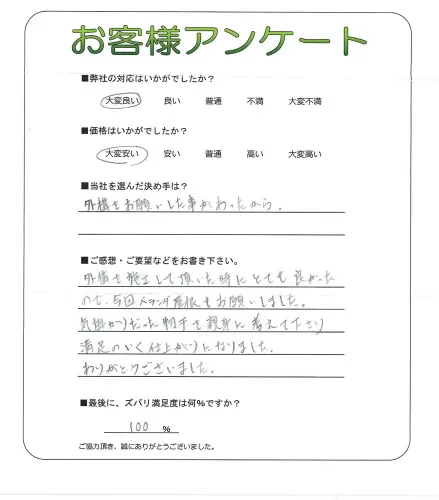 お客様アンケート
■弊社の対応はいかがでしたか？
大変良い 良い 普通 不満 大変不満
■価格はいかがでしたか？
大変安い 安い 普通 高い 大変高い
■当社を選んだ決め手は？
外構をお願いした事があったから。
■ご感想・ご要望などをお書き下さい。
外構を施工して頂いた時にとても良かった
ので、今回ベランダ屋根をお願いしました。
気掛かりだった 親身に考えて下さり
満足のいく仕上がりになりました。
ありがとうございました。
■最後に、ズバリ満足度は何％ですか？
100 ％
ご協力頂き、誠にありがとうございました。